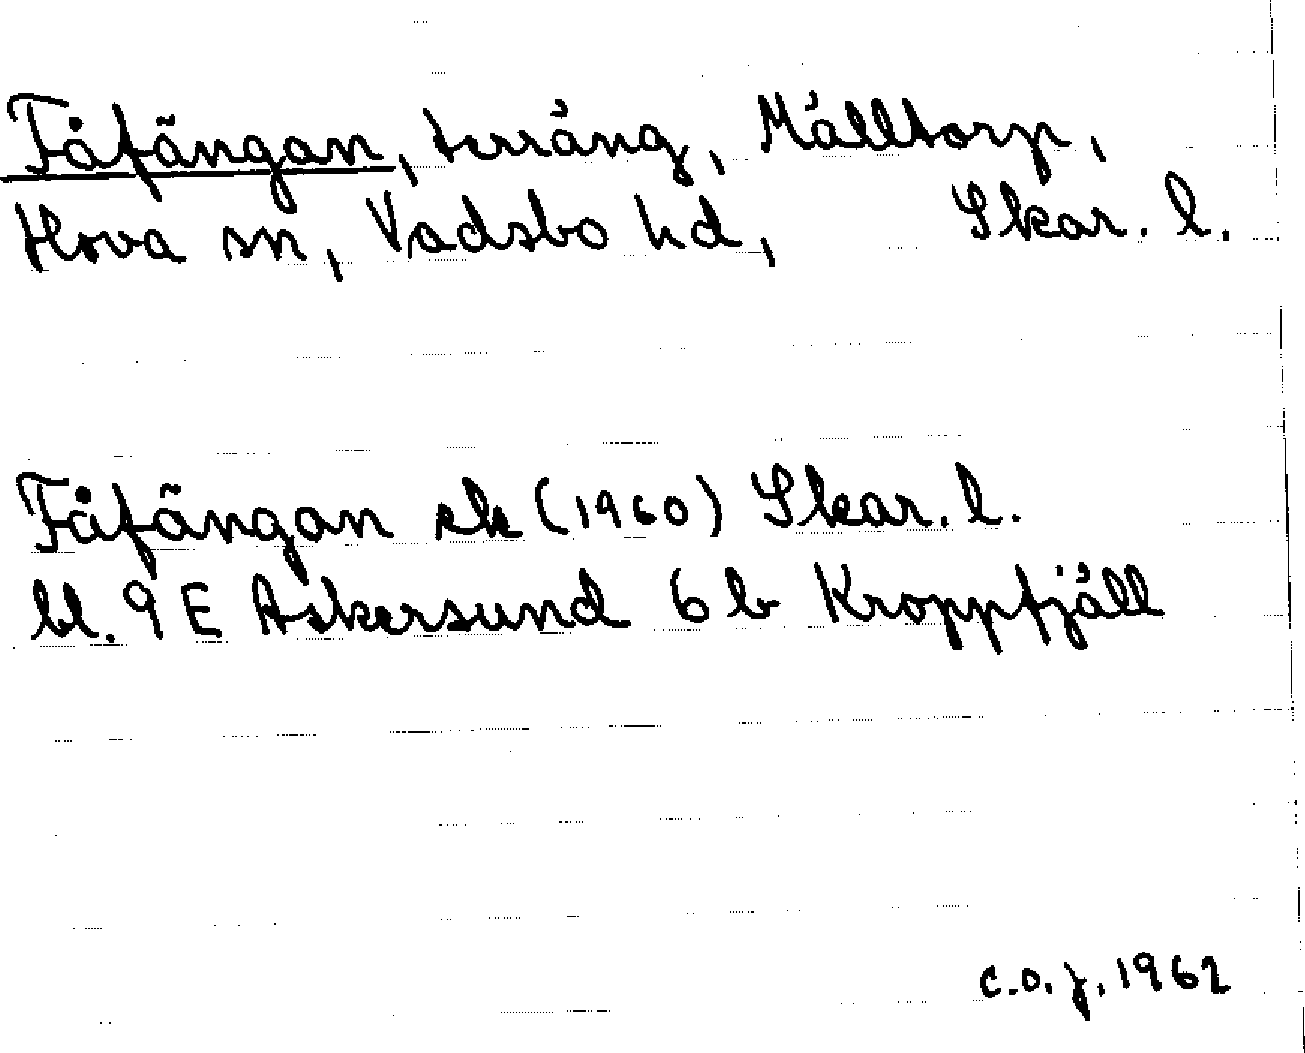 Fåfängan, terräng, Mälltorp,
Hova sn, Vadsbo hd, Skar. l.
Fåfängan ek (1960) Skar. l.
bl. 9 E Askersund 6 b Kroppfjäll
C.O.J. 1962